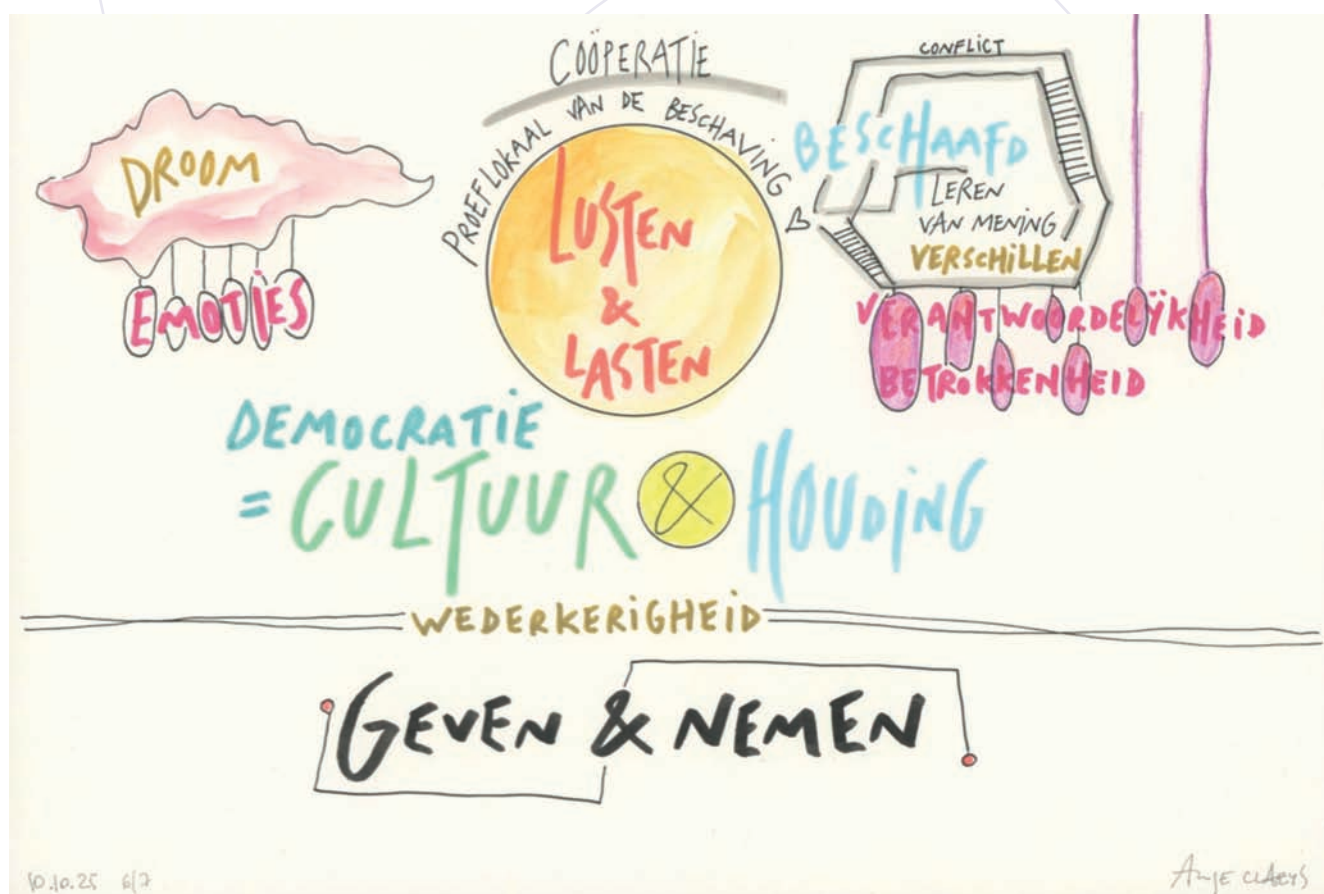 DROOM
EMOTIES
COÖPERATIE
PROEFLOKAAL VAN DE BESCHAVING
LUSTEN
&
LASTEN
CONFLICT
BESCHAAFD
LEREN
VAN MENING
VERSCHILLEN
VERANTWOORDELIJKHEID
BETROKKENHEID
DEMOCRATIE
= CULTUUR & HOUDING
WEDERKERIGHEID
GEVEN & NEMEN
10.10.25 6/7